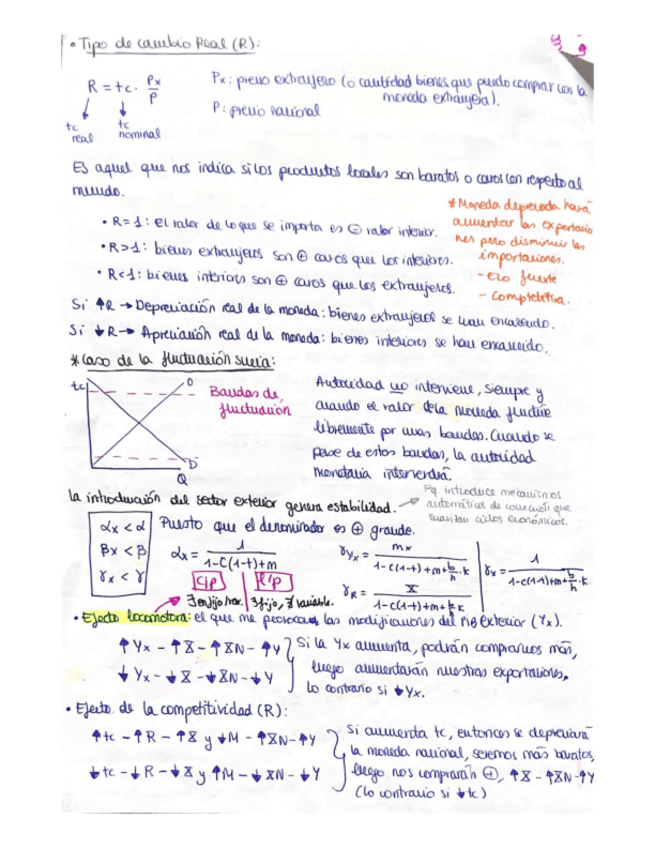 • Tipo de cambio Real (R):
R = tc · Px/P
tc real
tc nominal
Px: precio extranjero (o cantidad bienes que puedo comprar con la moneda extranjera).
P: precio nacional
Es aquel que nos indica si los productos locales son baratos o caros con respecto al
mundo.
• R=1: el valor de lo que se importa es = valor interior.
• R>1: bienes extranjeros son + caros que los interiores.
• R<1: bienes interiores son + caros que los extranjeros.
* Moneda depreciada hará
aumentar las exportacio
nes pero disminuir las
importaciones.
- Eco fuerte
- Competitiva.
Si ↑R → Depreciación real de la moneda: bienes extranjeros se han encarecido.
Si ↓R → Apreciación real de la moneda: bienes interiores se han encarecido.
* Caso de la fluctuación sucia:
tc
O
D
Q
Bandas de
fluctuación
Autoridad no interviene, siempre y
cuando el valor de la moneda fluctúe
libremente por unas bandas. Cuando se
pase de estas bandas, la autoridad
monetaria intervendrá.
La introducción del sector exterior genera estabilidad.
Pq introduce mecanismos
automáticos de
suavizan ciclos económicos.
αx < α
βx < β
γx < γ
Puesto que el denominador es + grande.
αx = 1 / 1-C(1-t)+m
γYx = mx / 1-C(1-t)+m+b/h·k
γR = x / 1-C(1-t)+m+b/h k
γx = 1 / 1-C(1-t)+m+b/h·k
C/p
• Efecto locomotora: el que me provocan las modificaciones del PIB exterior (Yx).
↑Yx - ↑X - ↑XN - ↑Y
↓Yx - ↓X - ↓XN - ↓Y
Si la Yx aumenta, podrán comprarnos más,
luego aumentarán nuestras exportaciones,
lo contrario si ↓Yx.
• Efecto de la competitividad (R):
↑tc - ↑R - ↑X y ↓M - ↑XN - ↑Y
↓tc - ↓R - ↓X y ↑M - ↓XN - ↓Y
Si aumenta tc, entonces se depreciará
la moneda nacional, seremos más baratos,
luego nos comprarán +, ↑X - ↑XN - ↑Y
(lo contrario si ↓tc)